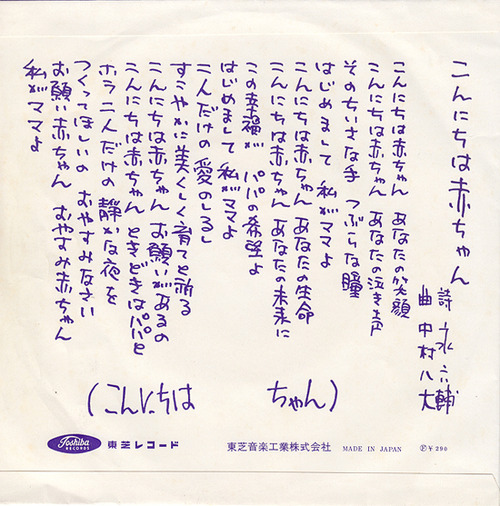 こんにちは赤ちゃん
詩 永六輔
曲 中村八大
こんにちは赤ちゃん あなたの笑顔
こんにちは赤ちゃん あなたの泣き声
そのちいさな手 つぶらな瞳
はじめまして 私がママよ
こんにちは赤ちゃん あなたの生命
こんにちは赤ちゃん あなたの未来に
この幸福が パパの希望よ
はじめまして 私がママよ
二人だけの 愛のしるし
すこやかに美くしく 育てと祈る
こんにちは赤ちゃん お願いがあるの
こんにちは赤ちゃん ときどきはパパと
ホラ二人だけの 静かな夜を
つくってほしいの おやすみなさい
お願い赤ちゃん おやすみ赤ちゃん
私がママよ
(こんにちは ちゃん)
Toshiba RECORDS 東芝レコード 東芝音楽工業株式会社 MADE IN JAPAN Ⓟ¥290